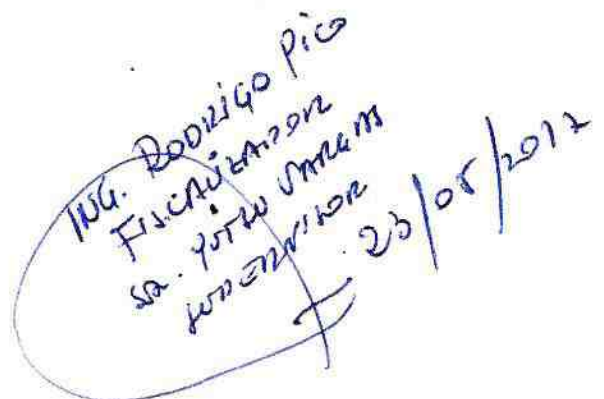 ING. RODRIGO PICO
FISCALIZADOR
SR. VARGAS
SUPERVISOR
23/05/2017